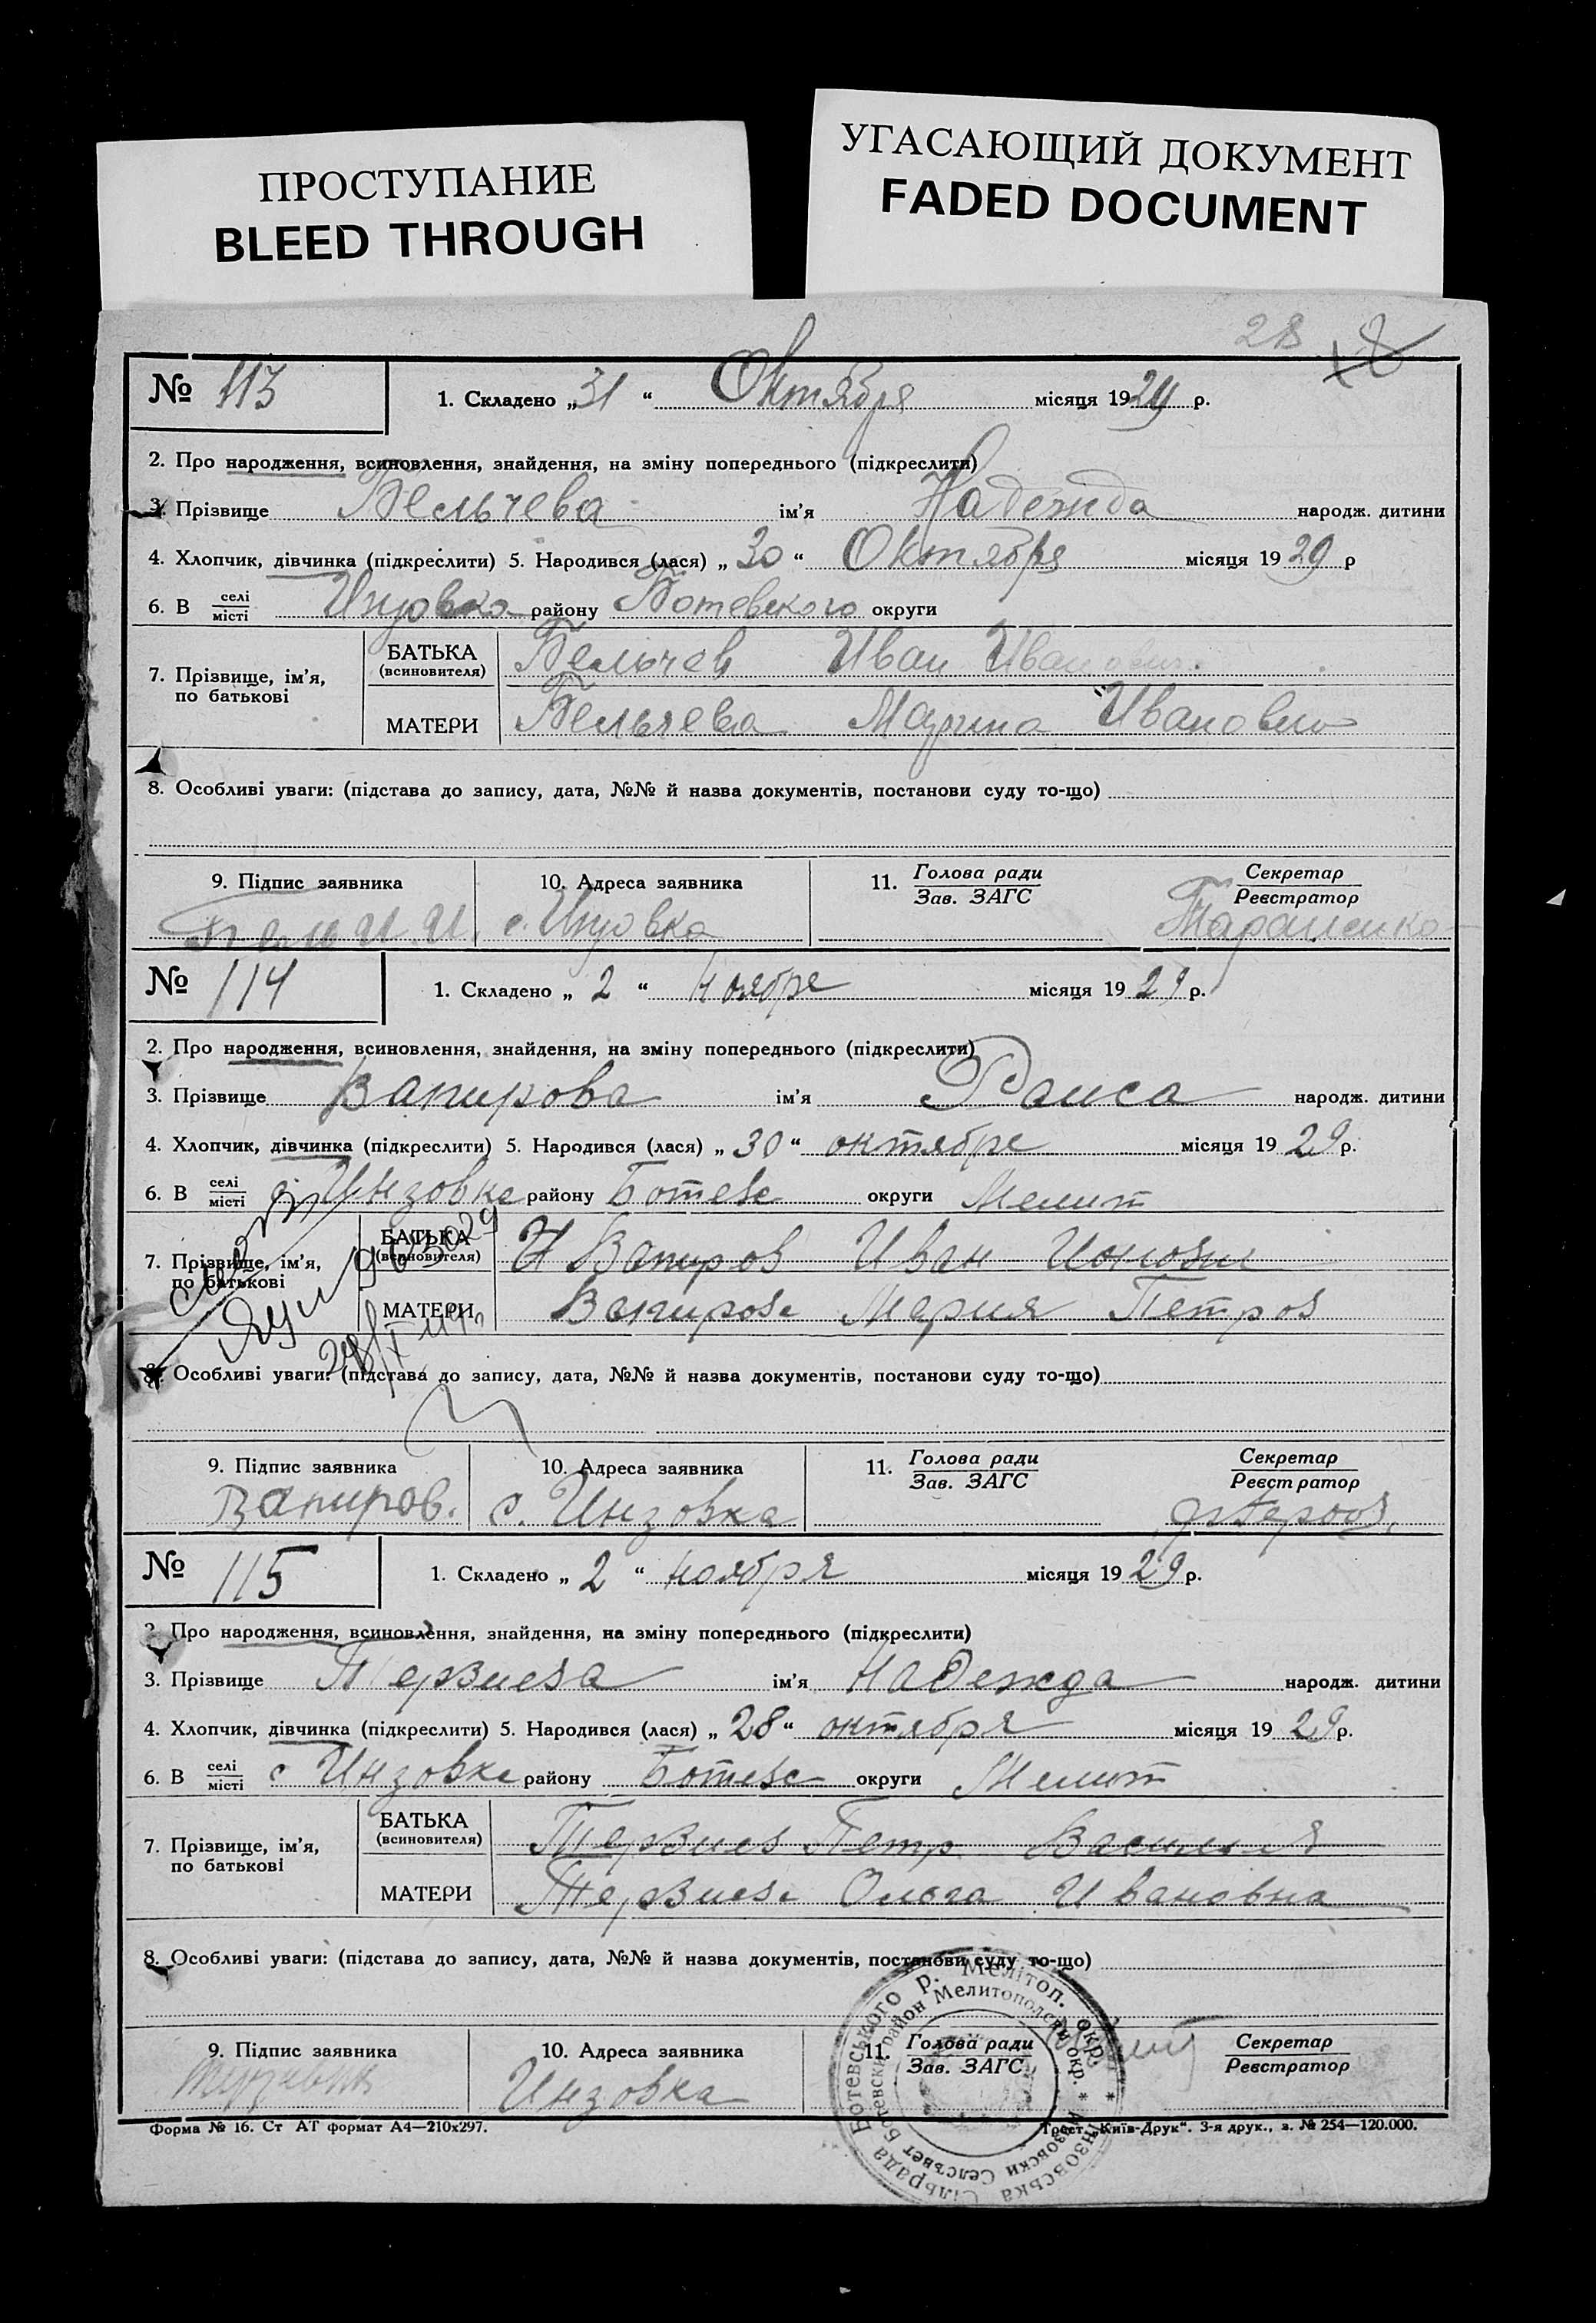 ПРОСТУПАНИЕ
BLEED THROUGH
УГАСАЮЩИЙ ДОКУМЕНТ
FADED DOCUMENT
28
№ 113 1. Складено „31“ Октября місяця 1929 р.
2. Про народження, всиновлення, знайдення, на зміну попереднього (підкреслити)
3. Прізвище Бельчева ім'я Надежда народж. дитини
4. Хлопчик, дівчинка (підкреслити) 5. Народився (лася) „30“ Октября місяця 1929 р
6. В селі/місті Инзовка району Ботевского округи
7. Прізвище, ім'я, по батькові
БАТЬКА (всиновителя) Бельчев Иван Иванович.
МАТЕРИ Бельчева Марина Ивановна
8. Особливі уваги: (підстава до запису, дата, №№ й назва документів, постанови суду то-що)
9. Підпис заявника 10. Адреса заявника 11. Голова ради Секретар
Зав. ЗАГС Реєстратор
И.И. с. Инзовка Тараненко
№ 114 1. Складено „2“ ноября місяця 1929 р.
2. Про народження, всиновлення, знайдення, на зміну попереднього (підкреслити)
3. Прізвище Вапирова ім'я Раиса народж. дитини
4. Хлопчик, дівчинка (підкреслити) 5. Народився (лася) „30“ октября місяця 1929 р.
6. В селі/місті с. Инзовка району Ботевс округи Мелит
7. Прізвище, ім'я, по батькові
БАТЬКА (всиновителя) Вапиров Иван
МАТЕРИ Вапирова Мария Петров
8. Особливі уваги: (підстава до запису, дата, №№ й назва документів, постанови суду то-що)
9. Підпис заявника 10. Адреса заявника 11. Голова ради Секретар
Зав. ЗАГС Реєстратор
Вапиров. с. Инзовка
№ 115 1. Складено „2“ ноября місяця 1929 р.
2. Про народження, всиновлення, знайдення, на зміну попереднього (підкреслити)
3. Прізвище Терзиева ім'я Надежда народж. дитини
4. Хлопчик, дівчинка (підкреслити) 5. Народився (лася) „28“ октября місяця 1929 р.
6. В селі/місті с Инзовка району Ботевс округи Мелит
7. Прізвище, ім'я, по батькові
БАТЬКА (всиновителя) Терзиев Петр Васильев
МАТЕРИ Терзиева Ольга Ивановна
8. Особливі уваги: (підстава до запису, дата, №№ й назва документів, постанови суду то-що)
9. Підпис заявника 10. Адреса заявника 11. Голова ради Секретар
Зав. ЗАГС Реєстратор
Инзовка
Інзовська Сільрада Ботевського р. Мелітоп. окр. *
Инзовски Селсъвет Ботевски район Мелитополски окр. *
Форма № 16. Ст АТ формат А4—210х297.
Трест „Київ-Друк“. 3-я друк., з. № 254—120.000.